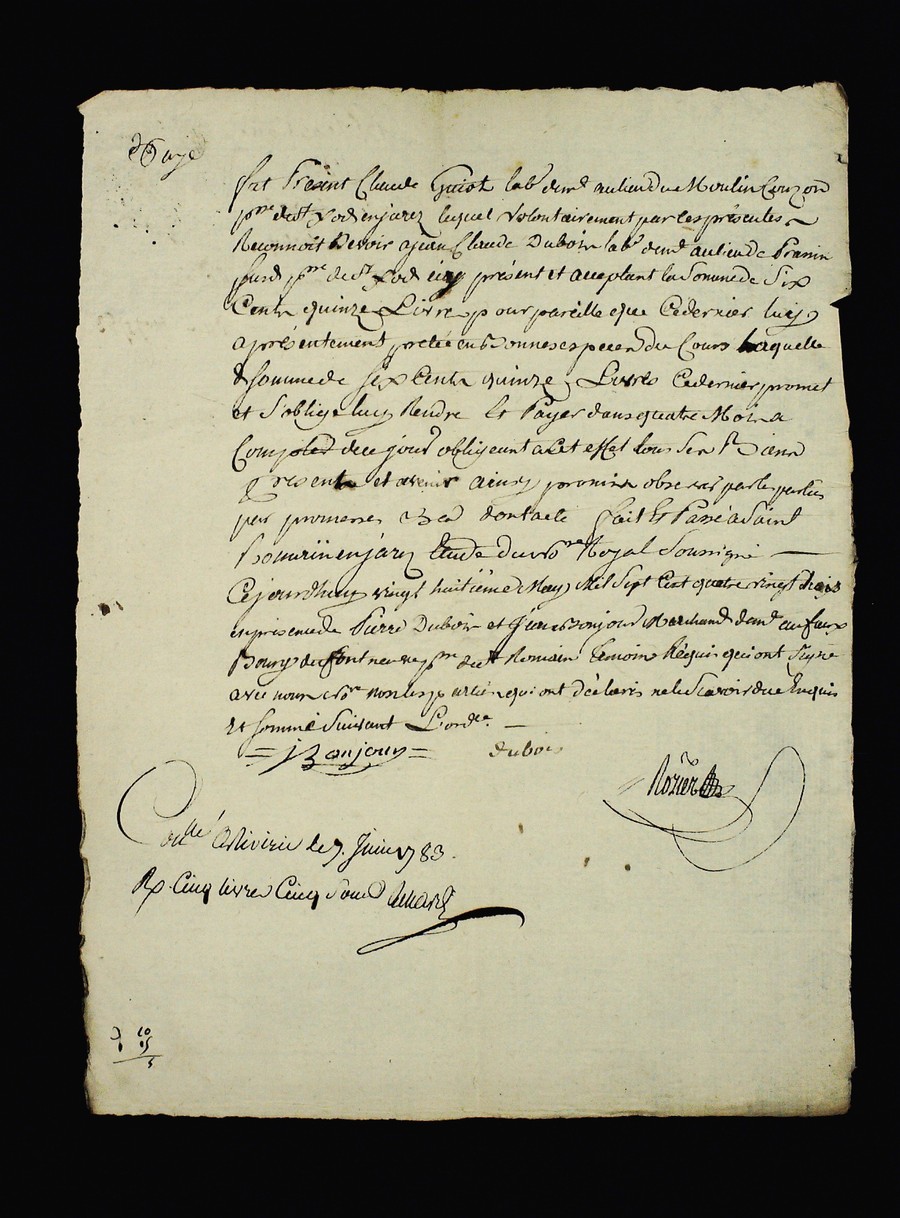 fut Présent Claude Guiot lab.r dem.t au lieu du Moulin Couzon
p.sse de S.t Jod en jarez lequel volontairement par les présentes
Reconnoit Devoir a jean Claude Dubois lab.r dem.t au lieu de
p.sse de S.t Jod icy présent et acceptant la Somme de Six
Cents quinze Livres pour pareille que Ce dernier luy
a présentement pretée en bonnes especes du Cours Laquelle
Somme de Six Cents quinze Livres Ce dernier promet
et S'oblige luy Rendre Et Payer dans quatre Mois a
Compter de ce jour obligeant a Cet effet tous Ses Biens
Presents et avenir ainsy promis observer par les parties
par promesses dont acte Fait Et Passé a Saint
Romain en jarez Etude du no.re Royal Soussigné
Cejourdhuy vingt huitième May Mil Sept Cent quatre vingt trois
en présence de Pierre Dubois et Jean Bonjour Marchand dem.t au faux
Bourg de font neuve p.sse de S.t Romain Temoins Requis qui ont Signé
avec nous no.re non les parties qui ont déclarés ne le Scavoir de ce Enquis
Et Sommé Suivant L'ord.ce
= J Bonjour = dubois
Rozier
Con.llé a Rivirie le 7. Juin 1783.
Rx Cinq livres Cinq Sous
10
15
5